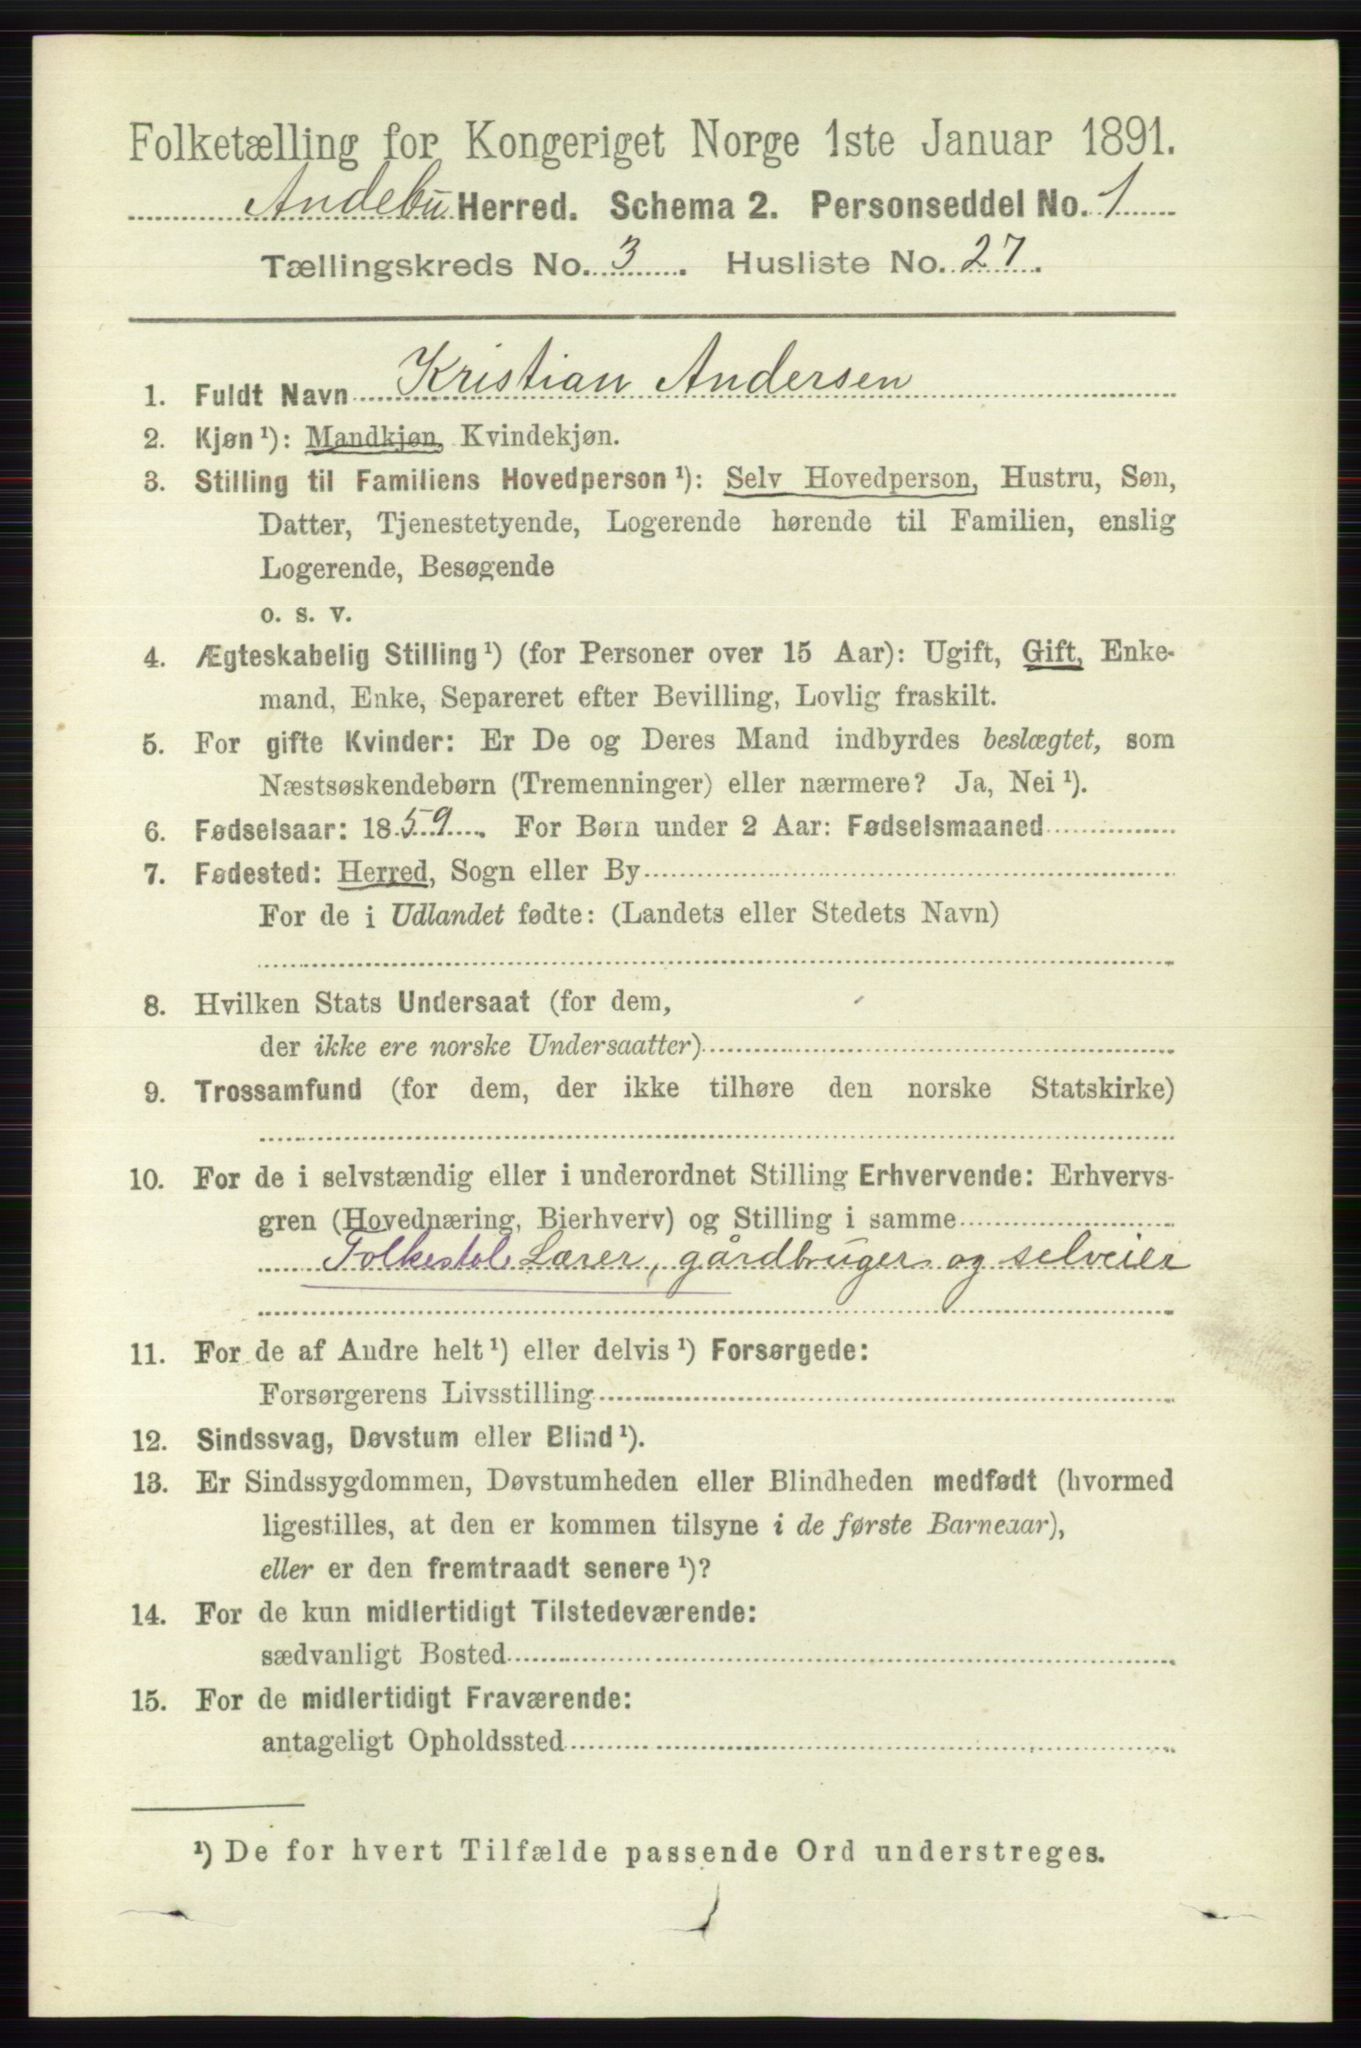 Folketælling for Kongeriget Norge 1ste Januar 1891.
Andebu Herred. Schema 2. Personseddel No. 1
Tællingskreds No. 3. Husliste No. 27.
1. Fuldt Navn Kristian Andersen
2. Kjøn¹): Mandkjøn, Kvindekjøn.
3. Stilling til Familiens Hovedperson¹): Selv Hovedperson, Hustru, Søn,
Datter, Tjenestetyende, Logerende hørende til Familien, enslig
Logerende, Besøgende
o. s. v.
4. Ægteskabelig Stilling¹) (for Personer over 15 Aar): Ugift, Gift, Enke-
mand, Enke, Separeret efter Bevilling, Lovlig fraskilt.
5. For gifte Kvinder: Er De og Deres Mand indbyrdes beslægtet, som
Næstsøskendebørn (Tremenninger) eller nærmere? Ja, Nei¹).
6. Fødselsaar: 1859. For Børn under 2 Aar: Fødselsmaaned
7. Fødested: Herred, Sogn eller By
For de i Udlandet fødte: (Landets eller Stedets Navn)
8. Hvilken Stats Undersaat (for dem,
der ikke ere norske Undersaatter)
9. Trossamfund (for dem, der ikke tilhøre den norske Statskirke)
10. For de i selvstændig eller i underordnet Stilling Erhvervende: Erhvervs-
gren (Hovednæring, Bierhverv) og Stilling i samme
Folkeskol Lærer, gårdbruger og selveier
11. For de af Andre helt¹) eller delvis¹) Forsørgede:
Forsørgerens Livsstilling
12. Sindssvag, Døvstum eller Blind¹).
13. Er Sindssygdommen, Døvstumheden eller Blindheden medfødt (hvormed
ligestilles, at den er kommen tilsyne i de første Barneaar),
eller er den fremtraadt senere¹)?
14. For de kun midlertidigt Tilstedeværende:
sædvanligt Bosted
15. For de midlertidigt Fraværende:
antageligt Opholdssted
¹) De for hvert Tilfælde passende Ord understreges.